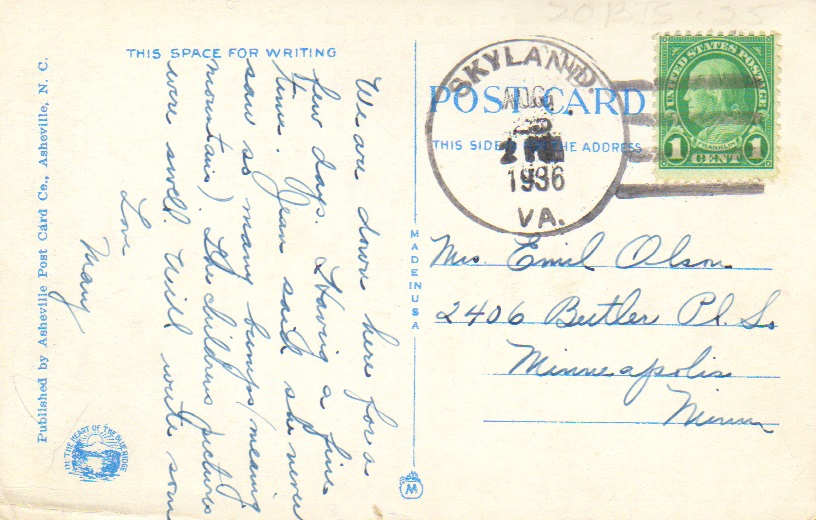 THIS SPACE FOR WRITING
We are down here for a
few days. Having a fine
time. Jean said she never
saw so many bumps (meaning
mountains) The childrens pictures
were swell. Will write soon
Love
Mary
Published by Asheville Post Card Co., Asheville, N. C.
IN THE HEART OF THE BLUE RIDGE
POST CARD
THIS SIDE THE ADDRESS
MADE IN USA
SKYLAND
AUG
2 PM
1936
VA.
UNITED STATES POSTAGE
FRANKLIN
1 CENT 1
Mrs. Emil Olson
2406 Butler Pl. So
Minneapolis
Minn